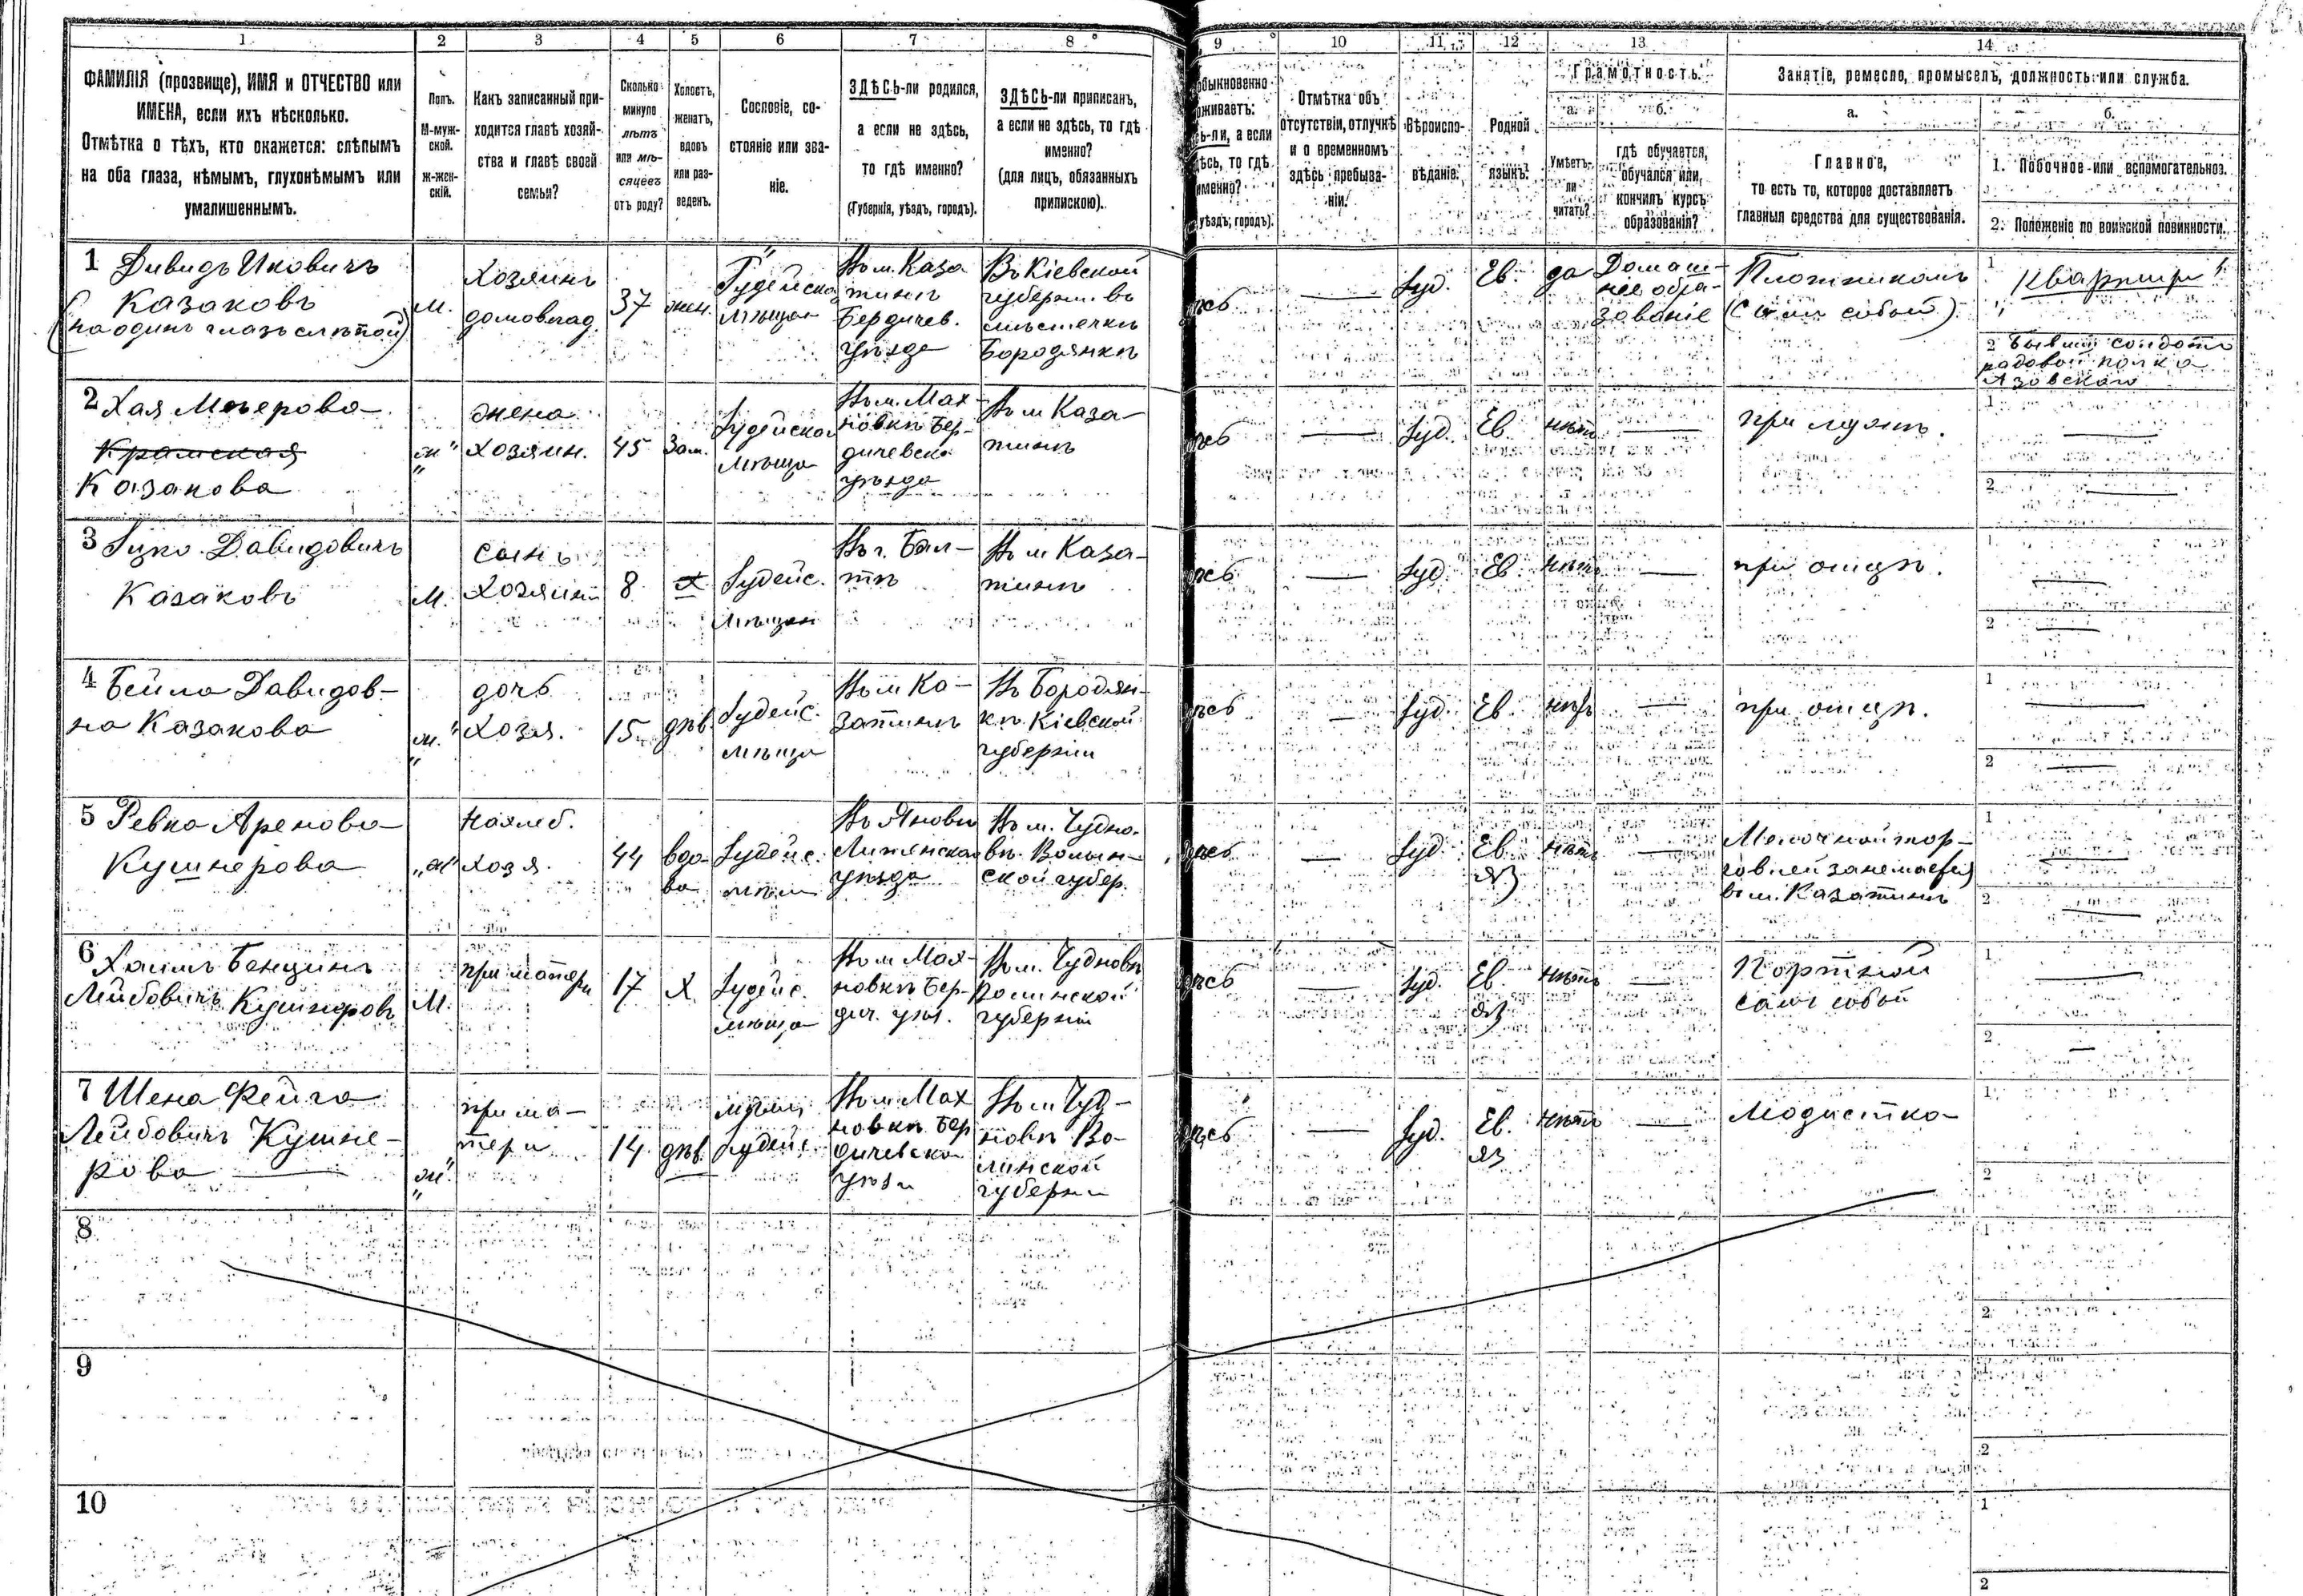 1 2 3 4 5 6 7 8 9 10 11 12 13 14
ФАМИЛІЯ (прозвище), ИМЯ и ОТЧЕСТВО или
ИМЕНА, если ихъ нѣсколько.
Отмѣтка о тѣхъ, кто окажется: слѣпымъ
на оба глаза, нѣмымъ, глухонѣмымъ или
умалишеннымъ.
Полъ.
М-муж-
ской.
Ж-жен-
скій.
Какъ записанный при-
ходится главѣ хозяй-
ства и главѣ своей
семьи?
Сколько
минуло
лѣтъ
или мѣ-
сяцевъ
отъ роду?
Холостъ,
женатъ,
вдовъ
или раз-
веденъ.
Сословіе, со-
стояніе или зва-
ніе.
ЗДѢСЬ-ли родился,
а если не здѣсь,
то гдѣ именно?
(Губернія, уѣздъ, городъ).
ЗДѢСЬ-ли приписанъ,
а если не здѣсь, то гдѣ
именно?
(для лицъ, обязанныхъ
припискою).
быкновенно
оживаетъ:
ь-ли, а если
ѣсь, то гдѣ
именно?
уѣздъ, городъ).
Отмѣтка объ
отсутствіи, отлучкѣ
и о временномъ
здѣсь пребыва-
ніи.
Вѣроиспо-
вѣданіе.
Родной
языкъ.
Грамотность.
а.
Умѣетъ-
ли
читать?
б.
гдѣ обучается,
обучался или
кончилъ курсъ
образованія?
Занятіе, ремесло, промыселъ, должность или служба.
а.
Главное,
то есть то, которое доставляетъ
главныя средства для существованія.
б.
1. Побочное или вспомогательное.
2. Положеніе по воинской повинности.
1 Давидъ Ицковичъ
Казаковъ
(на одинъ глазъ слѣпой)
М.
Хозяинъ
домовлад.
37
жен.
Іудейска
мѣщан
Въ м. Каза
тинѣ
Бердичев.
уѣзда
Въ Кіевской
губерніи въ
мѣстечкѣ
Бородянкѣ
Іуд.
Ев.
да
Домаш-
нее обра-
зованіе
Плотникомъ
(самъ собой)
1
2 Бывший солдатъ
рядовой полка
Азовскаго
2 Хая
Казакова
ж
жена
Хозяин.
45
Зам.
Іудейской
мѣща
Въ м. Мах-
новкѣ Бер-
дичевско
уѣзда
Въ м Каза-
тинѣ
Іуд.
Ев.
нѣтъ
при мужѣ.
1
2
3 Ицко Давидовичъ
Казаковъ
М.
сынъ
Хозяина
8
Х
Іудейс.
мѣщан
Въ г. Бал-
тѣ
Въ м Каза-
тинѣ
Іуд.
Ев.
нѣтъ
при отцѣ.
1
2
4 Бейла Давидов-
на Казакова
ж.
дочь
Хозя.
15
дѣв.
Іудейс.
мѣща
Въ м Ка-
затинѣ
Въ Бородян-
кѣ Кіевской
губерніи
Іуд.
Ев.
нѣтъ
при отцѣ.
1
2
5 Ревка Аренова
Кушнерова
ж
нахлеб.
хозя.
44
вдо-
ва
Іудейс.
мѣщ
уѣзда
Въ м. Чудно-
вѣ Волын-
ской губер.
Іуд.
Ев.
яз
нѣтъ
Мелочной тор-
говлей занемается
въ м. Казатинѣ
1
2
6 Хаимъ Бенционъ
Лейбовичъ Кушнеровъ
М.
при матери
17
Х.
Іудейс.
мѣща
Въ м Мах-
новкѣ Бер-
дич. уѣз.
Въ м. Чудновѣ
Волинской
губерніи
Іуд.
Ев.
яз
нѣтъ
Портной
самъ собой
1
2
7 Шена Фейга
Лейбовичъ Кушне-
рова
ж.
при ма-
тери
14
дѣв.
мѣщ
Іудейс
Въ м Мах
новкѣ Бер
дичевско
уѣзд
Въ м Чуд-
новѣ Во-
линской
губерни
Іуд.
Ев.
яз
нѣтъ
Модистка
1
2
8
1
2
9
1
2
10
1
2